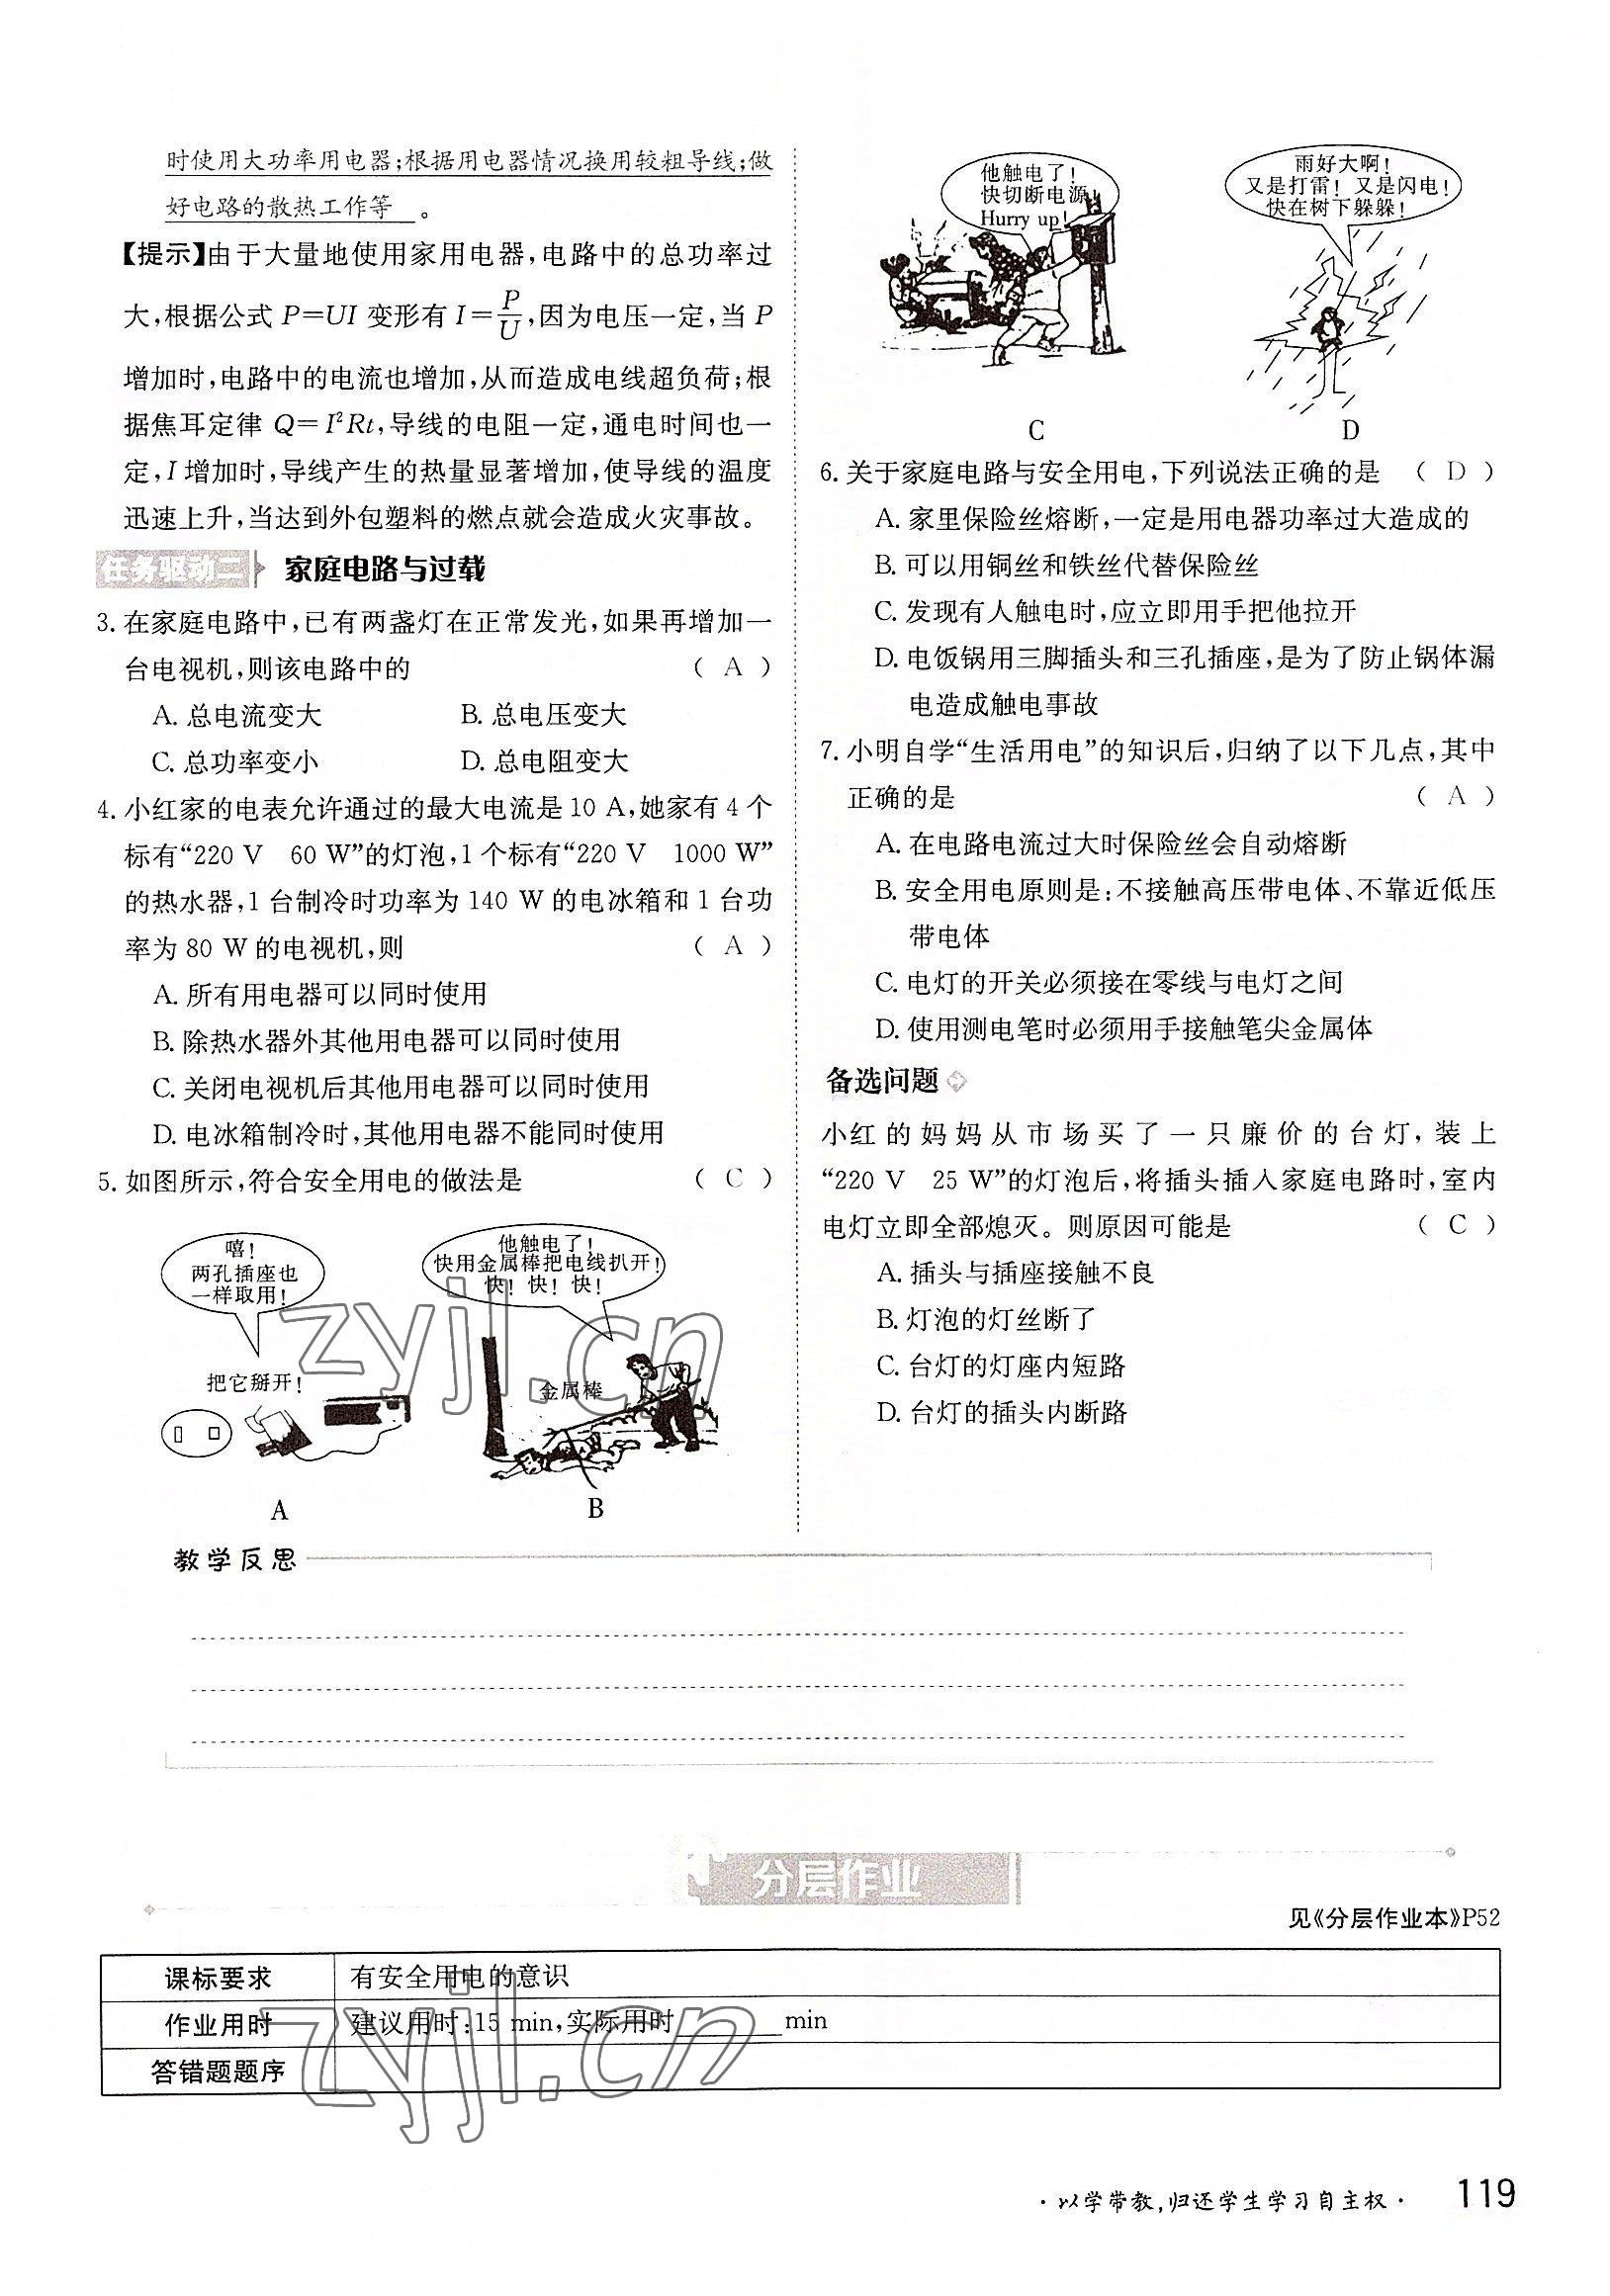 时使用大功率用电器;根据用电器情况换用较粗导线;做
好电路的散热工作等 。
【提示】由于大量地使用家用电器,电路中的总功率过
大,根据公式 P=UI 变形有 I=P/U,因为电压一定,当 P
增加时,电路中的电流也增加,从而造成电线超负荷;根
据焦耳定律 Q=I²Rt,导线的电阻一定,通电时间也一
定,I 增加时,导线产生的热量显著增加,使导线的温度
迅速上升,当达到外包塑料的燃点就会造成火灾事故。
任务驱动二 家庭电路与过载
3. 在家庭电路中,已有两盏灯在正常发光,如果再增加一
台电视机,则该电路中的 ( A )
A. 总电流变大 B. 总电压变大
C. 总功率变小 D. 总电阻变大
4. 小红家的电表允许通过的最大电流是 10 A,她家有 4 个
标有“220 V 60 W”的灯泡,1 个标有“220 V 1000 W”
的热水器,1 台制冷时功率为 140 W 的电冰箱和 1 台功
率为 80 W 的电视机,则 ( A )
A. 所有用电器可以同时使用
B. 除热水器外其他用电器可以同时使用
C. 关闭电视机后其他用电器可以同时使用
D. 电冰箱制冷时,其他用电器不能同时使用
5. 如图所示,符合安全用电的做法是 ( C )
嘻!
两孔插座也
一样取用!
把它掰开!
A
他触电了!
快用金属棒把电线扒开!
快! 快! 快!
金属棒
B
他触电了!
快切断电源
Hurry up!
C
雨好大啊!
又是打雷! 又是闪电!
快在树下躲躲!
D
6. 关于家庭电路与安全用电,下列说法正确的是 ( D )
A. 家里保险丝熔断,一定是用电器功率过大造成的
B. 可以用铜丝和铁丝代替保险丝
C. 发现有人触电时,应立即用手把他拉开
D. 电饭锅用三脚插头和三孔插座,是为了防止锅体漏
电造成触电事故
7. 小明自学“生活用电”的知识后,归纳了以下几点,其中
正确的是 ( A )
A. 在电路电流过大时保险丝会自动熔断
B. 安全用电原则是:不接触高压带电体、不靠近低压
带电体
C. 电灯的开关必须接在零线与电灯之间
D. 使用测电笔时必须用手接触笔尖金属体
备选问题
小红的妈妈从市场买了一只廉价的台灯,装上
“220 V 25 W”的灯泡后,将插头插入家庭电路时,室内
电灯立即全部熄灭。则原因可能是 ( C )
A. 插头与插座接触不良
B. 灯泡的灯丝断了
C. 台灯的灯座内短路
D. 台灯的插头内断路
zyjl.cn
教学反思
分层作业
见《分层作业本》P52
课标要求 有安全用电的意识
作业用时 建议用时:15 min,实际用时________min
答错题题序
zyjl.cn
· 以学带教,归还学生学习自主权 · 119